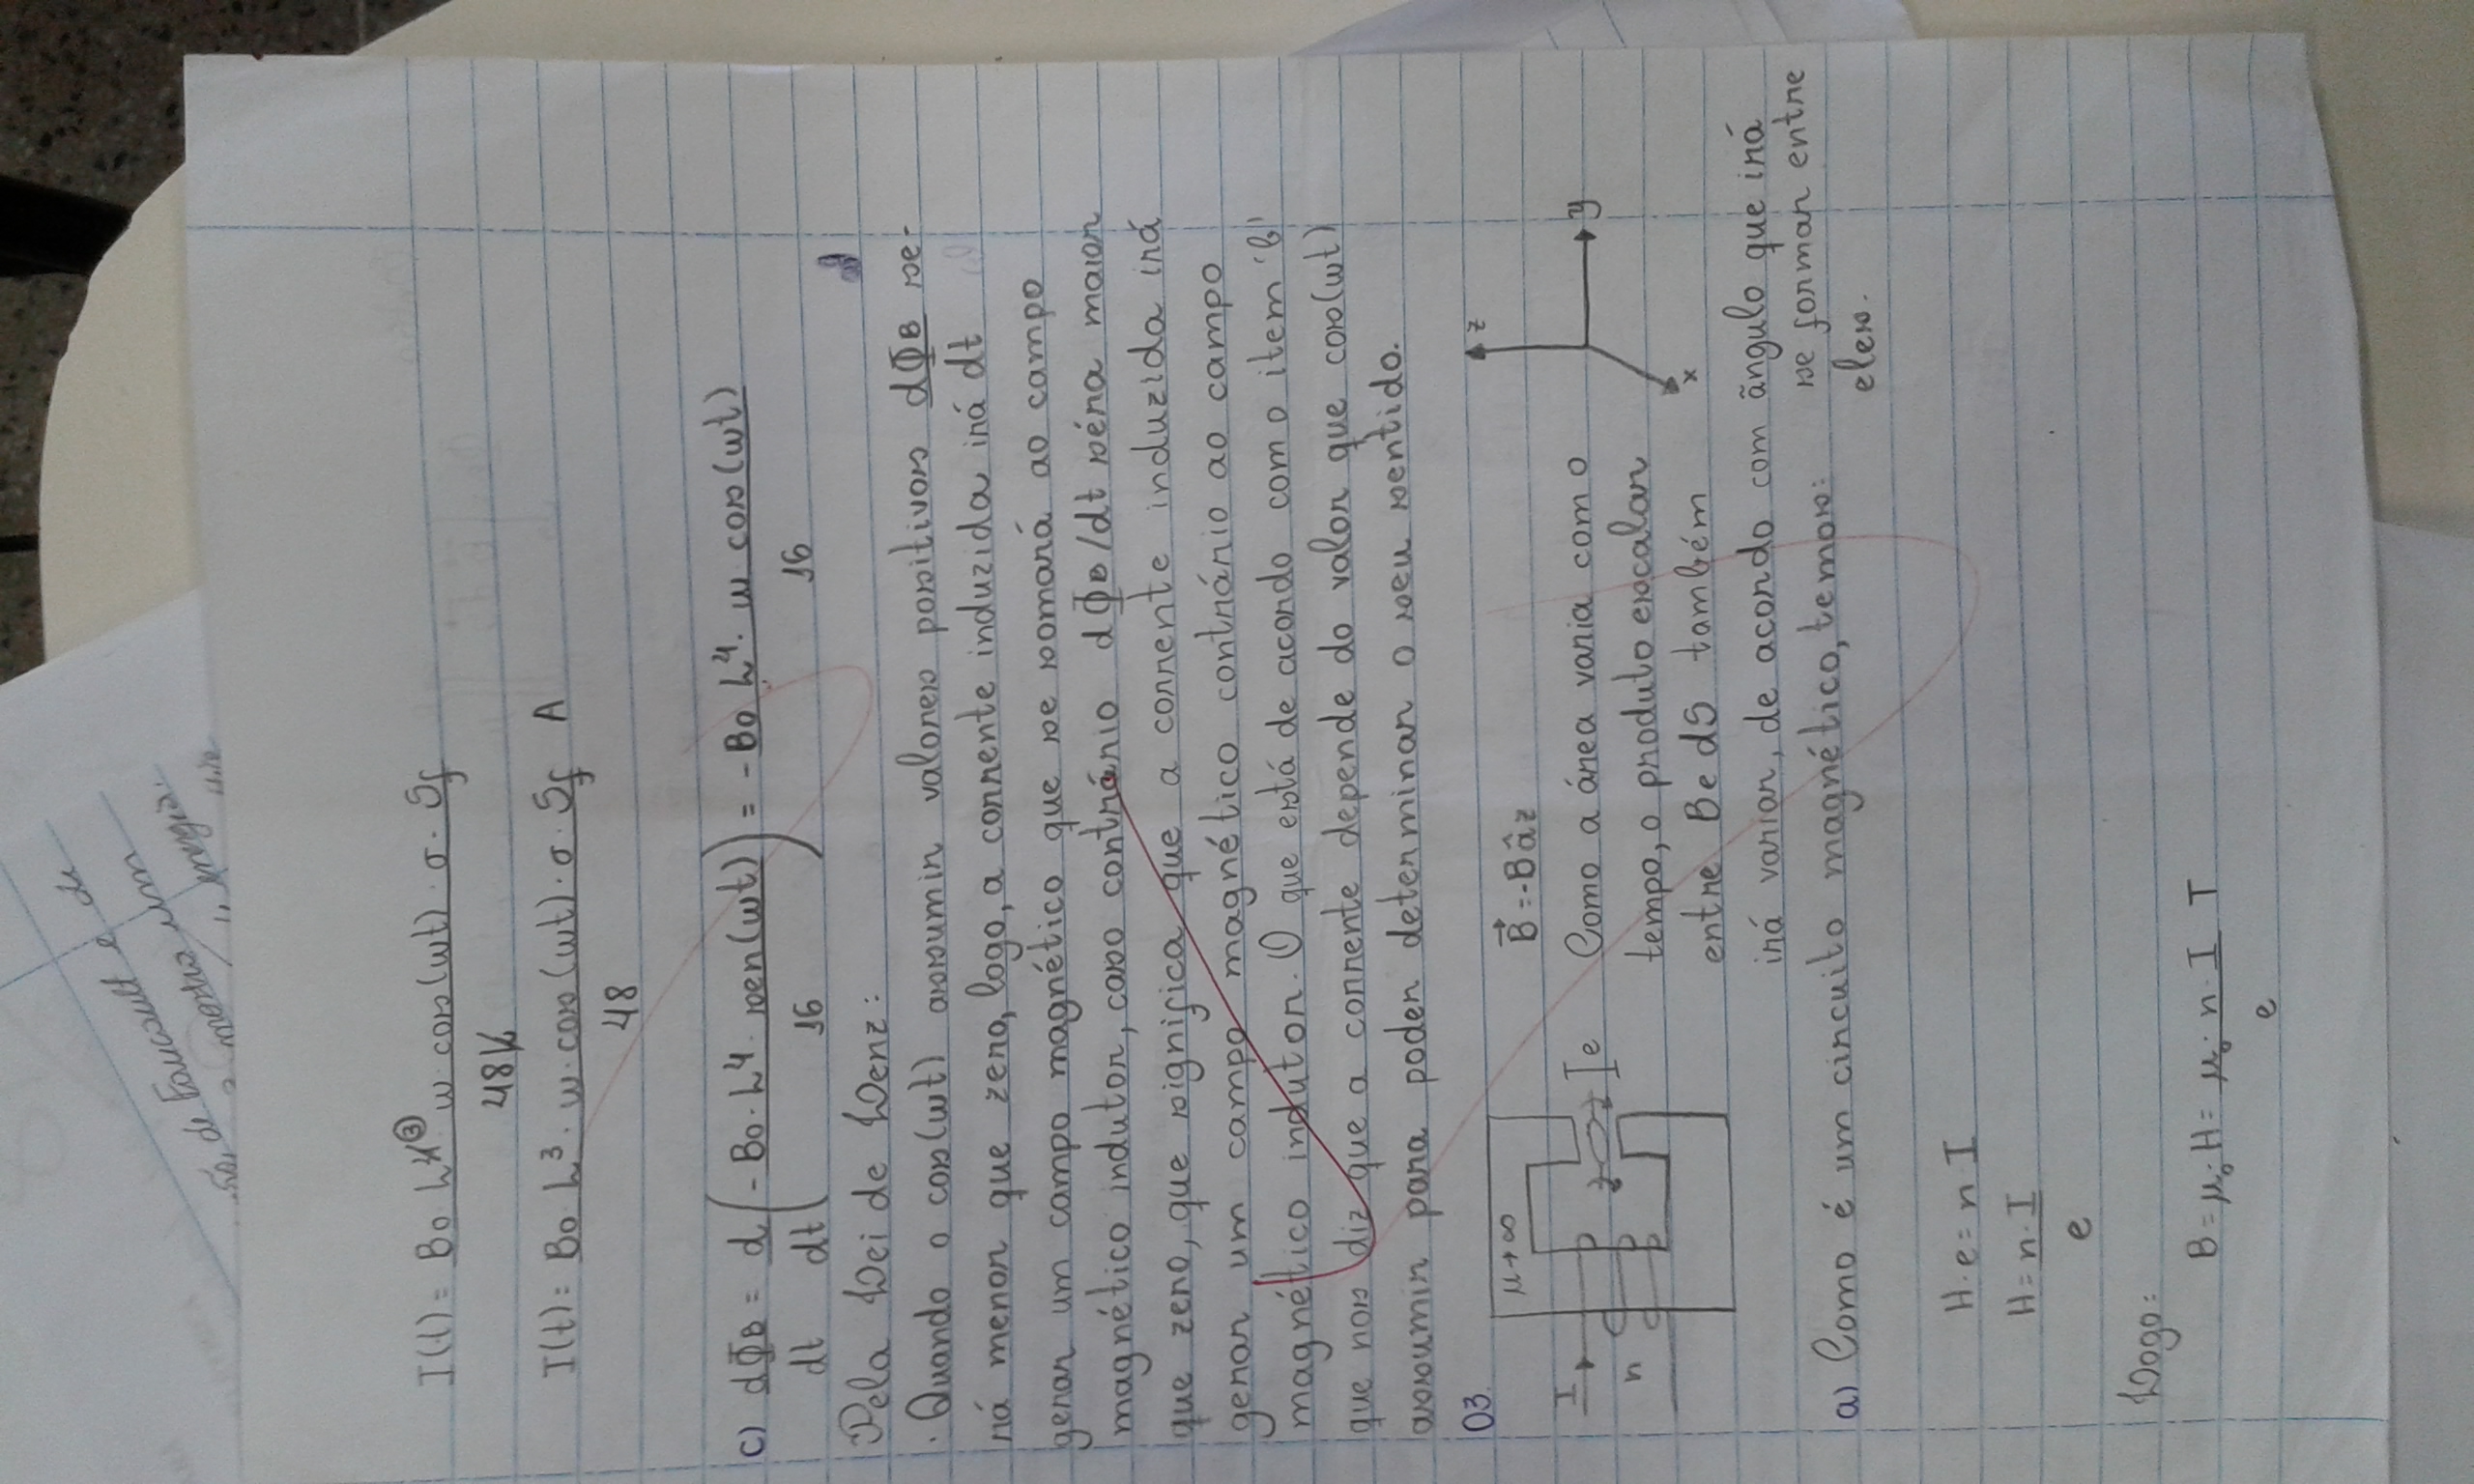 de Foucault e de
mostra um
energia.
I(t) = B0·L4③ w·cos(wt)·σ·Sf
48L
I(t) = B0·L³·w·cos(wt)·σ·Sf A
48
c) dΦB = d (-B0·L⁴·sen(wt)) = -B0 L⁴·w cos(wt)
dt dt 16 16
Pela Lei de Lenz:
· Quando o cos(wt) assumir valores positivos dΦB se-
rá menor que zero, logo, a corrente induzida irá dt
gerar um campo magnético que se somará ao campo
magnético indutor, caso contrário dΦB/dt séra maior
que zero, que significa que a corrente induzida irá
gerar um campo magnético contrário ao campo
magnético indutor. O que está de acordo com o item 'b'
que nos diz que a corrente depende do valor que cos(wt)
assumir para poder determinar o seu sentido.
03.
μ→∞
I
n
e
B⃗ = -B âz
z
y
x
Como a área varia com o
tempo, o produto escalar
entre B e dS também
irá variar, de acordo com ãngulo que irá
se formar entre
eles.
a) Como é um circuito magnético, temos:
H·e = n I
H = n·I
e
Logo:
B = μ0·H = μ0·n·I T
e